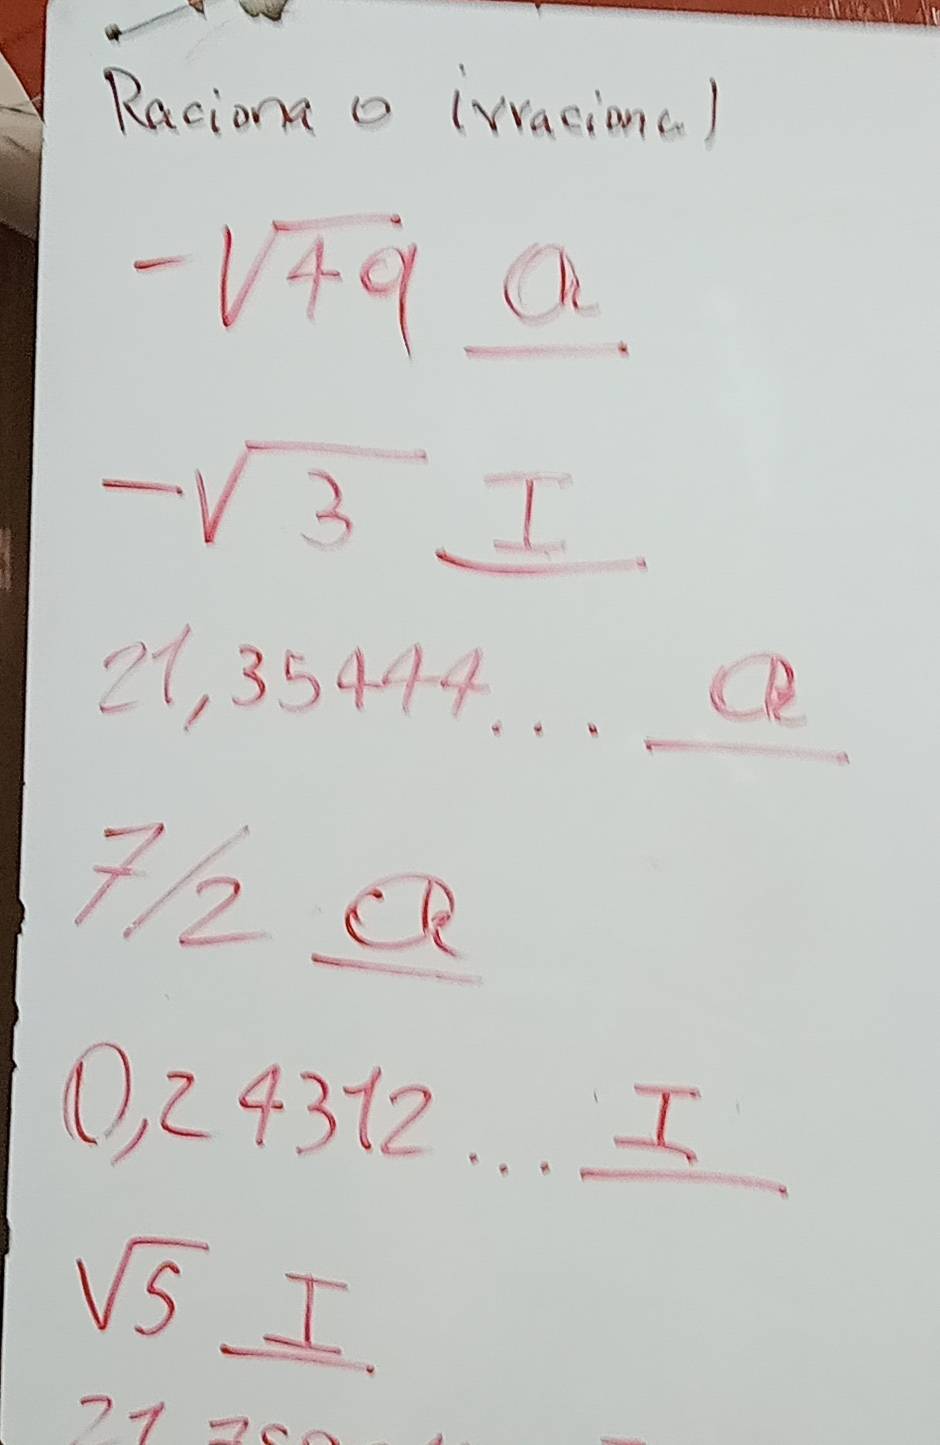 Raciona o irracional
-√49 Q
-√3 I
21,35444... Q
7/2 Q
0,24312... I
√5 I